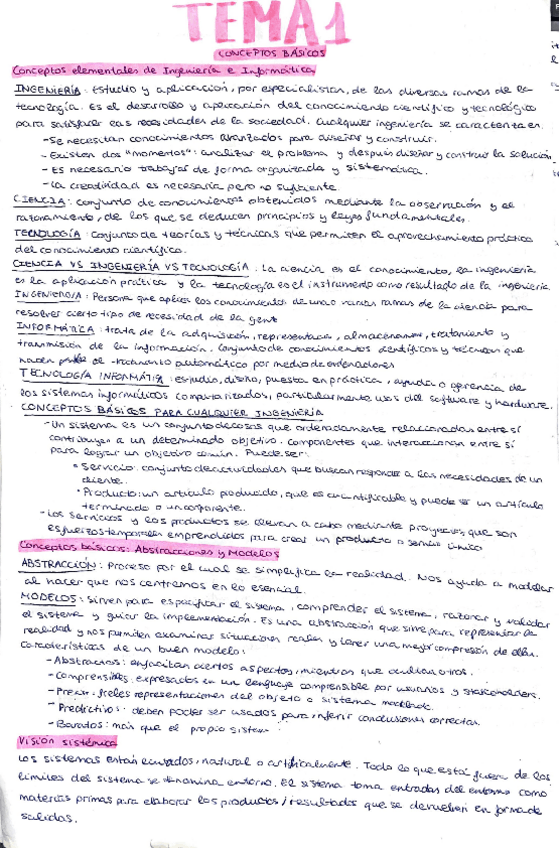 TEMA1
CONCEPTOS BÁSICOS
Conceptos elementales de Ingeniería e Informática
INGENIERÍA: Estudio y aplicación, por especialistas, de las diversas ramas de la
tecnología. Es el desarrollo y aplicación del conocimiento científico y tecnológico
para satisfacer las necesidades de la sociedad. Cualquier ingeniería se caracteriza en:
- Se necesitan conocimientos avanzados para diseñar y construir.
- Existen dos "momentos": analizar el problema y después diseñar y construir la solución.
- Es necesario trabajar de forma organizada y sistemática.
- La creatividad es necesaria pero no suficiente.
CIENCIA: conjunto de conocimientos obtenidos mediante la observación y el
razonamiento, de los que se deducen principios y leyes fundamentales.
TECNOLOGÍA: Conjunto de teorías y técnicas que permiten el aprovechamiento práctico
del conocimiento científico.
CIENCIA VS INGENIERÍA VS TECNOLOGÍA: La ciencia es el conocimiento, la ingeniería
es la aplicación práctica y la tecnología es el instrumento como resultado de la ingeniería.
Persona que aplica los conocimientos de una o varias ramas de la ciencia para
resolver cierto tipo de necesidad de la gente
INFORMÁTICA: trata de la adquisición, representación, almacenamiento, tratamiento y
transmisión de la información. Conjunto de conocimientos científicos y técnicos que
hacen el tratamiento automático por medio de ordenadores
TECNOLOGÍA INFORMÁTICA: estudio, diseño, puesta en práctica, ayuda o gerencia de
los sistemas informáticos computarizados, particularmente usos del software y hardware.
CONCEPTOS BÁSICOS PARA CUALQUIER INGENIERÍA
- Un sistema es un conjunto de cosas que ordenadamente relacionadas entre sí
contribuyen a un determinado objetivo. Componentes que interaccionan entre sí
para lograr un objetivo común. Puede ser:
• Servicio: conjunto de actividades que buscan responder a las necesidades de un
cliente.
• Producto: un artículo producido, que es cuantificable y puede ser un artículo
terminado o un componente.
- Los servicios y los productos se llevan a cabo mediante proyectos, que son
esfuerzos temporales emprendidos para crear un producto o servicio único
Conceptos básicos: Abstracciones y Modelos
ABSTRACCIÓN: Proceso por el cual se simplifica la realidad. Nos ayuda a modelar
al hacer que nos centremos en lo esencial.
MODELOS: sirven para especificar el sistema, comprender el sistema, razonar y validar
el sistema y guiar la implementación. Es una abstracción que sirve para representar la
realidad y nos permiten examinar situaciones reales y tener una mejor compresión de ellas.
Características de un buen modelo:
- Abstractos: enfocan ciertos aspectos, mientras que ocultan otros.
- Comprensibles: expresados en un lenguaje comprensible por usuarios y stakeholders.
- fieles representaciones del objeto o sistema modelado.
- Predictivos: deben poder ser usados para inferir conclusiones correctas.
- Baratos: más que el propio sistema
Visión sistémica
Los sistemas están natural o artificialmente. Todo lo que está fuera de los
límites del sistema se denomina entorno. El sistema toma entradas del entorno como
materias primas para elaborar los productos/resultados que se devuelven en forma de
salidas.